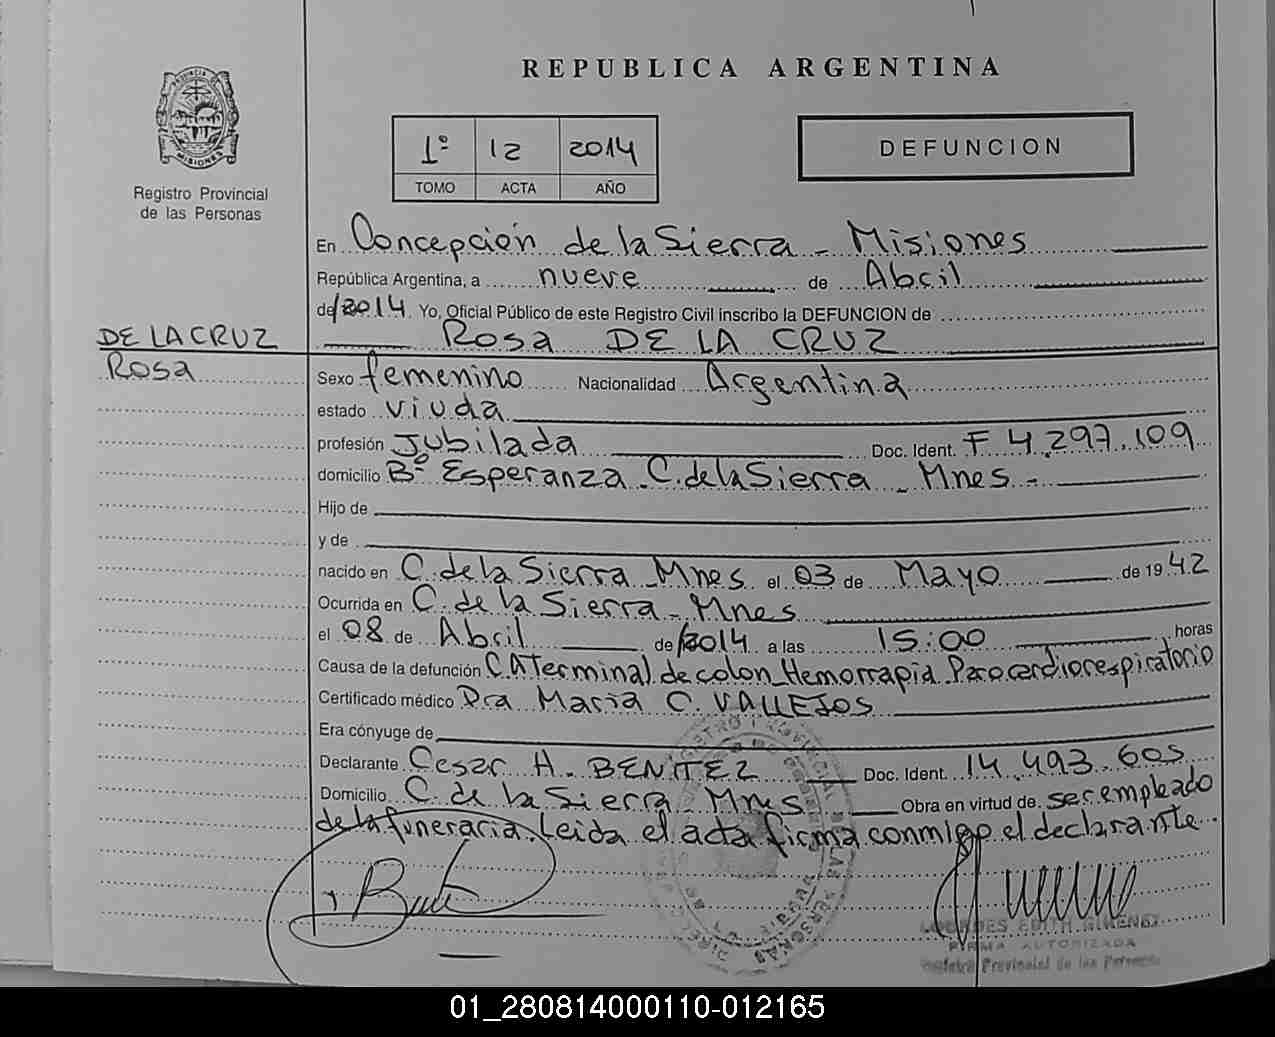 REPUBLICA ARGENTINA
PROVINCIA DE MISIONES
Registro Provincial
de las Personas
1º 12 2014
TOMO ACTA AÑO
DEFUNCION
En Concepción de la Sierra - Misiones
República Argentina, a nueve de Abril
de/2014 Yo, Oficial Público de este Registro Civil inscribo la DEFUNCION de
Rosa DE LA CRUZ
DE LA CRUZ
Rosa
Sexo femenino Nacionalidad Argentina
estado viuda
profesión Jubilada Doc. Ident. F 4.297.109
domicilio Bº Esperanza - C. de la Sierra - Mnes -
Hijo de
y de
nacido en C. de la Sierra - Mnes el 03 de Mayo de 1942
Ocurrida en C. de la Sierra - Mnes
el 08 de Abril de/2014 a las 15:00 horas
Causa de la defunción CA Terminal de colon - Hemorrapia - Parocardiorespiratorio
Certificado médico Dra Maria C. VALLEJOS
Era cónyuge de
Declarante Cesar H. BENITEZ Doc. Ident. 14.493.605
Domicilio C. de la Sierra - Mnes Obra en virtud de ser empleado
de la funeraria. Leida el acta firma conmigo el declarante
LOURDES EDITH GIMENEZ
FIRMA AUTORIZADA
Registro Provincial de las Personas
01_280814000110-012165